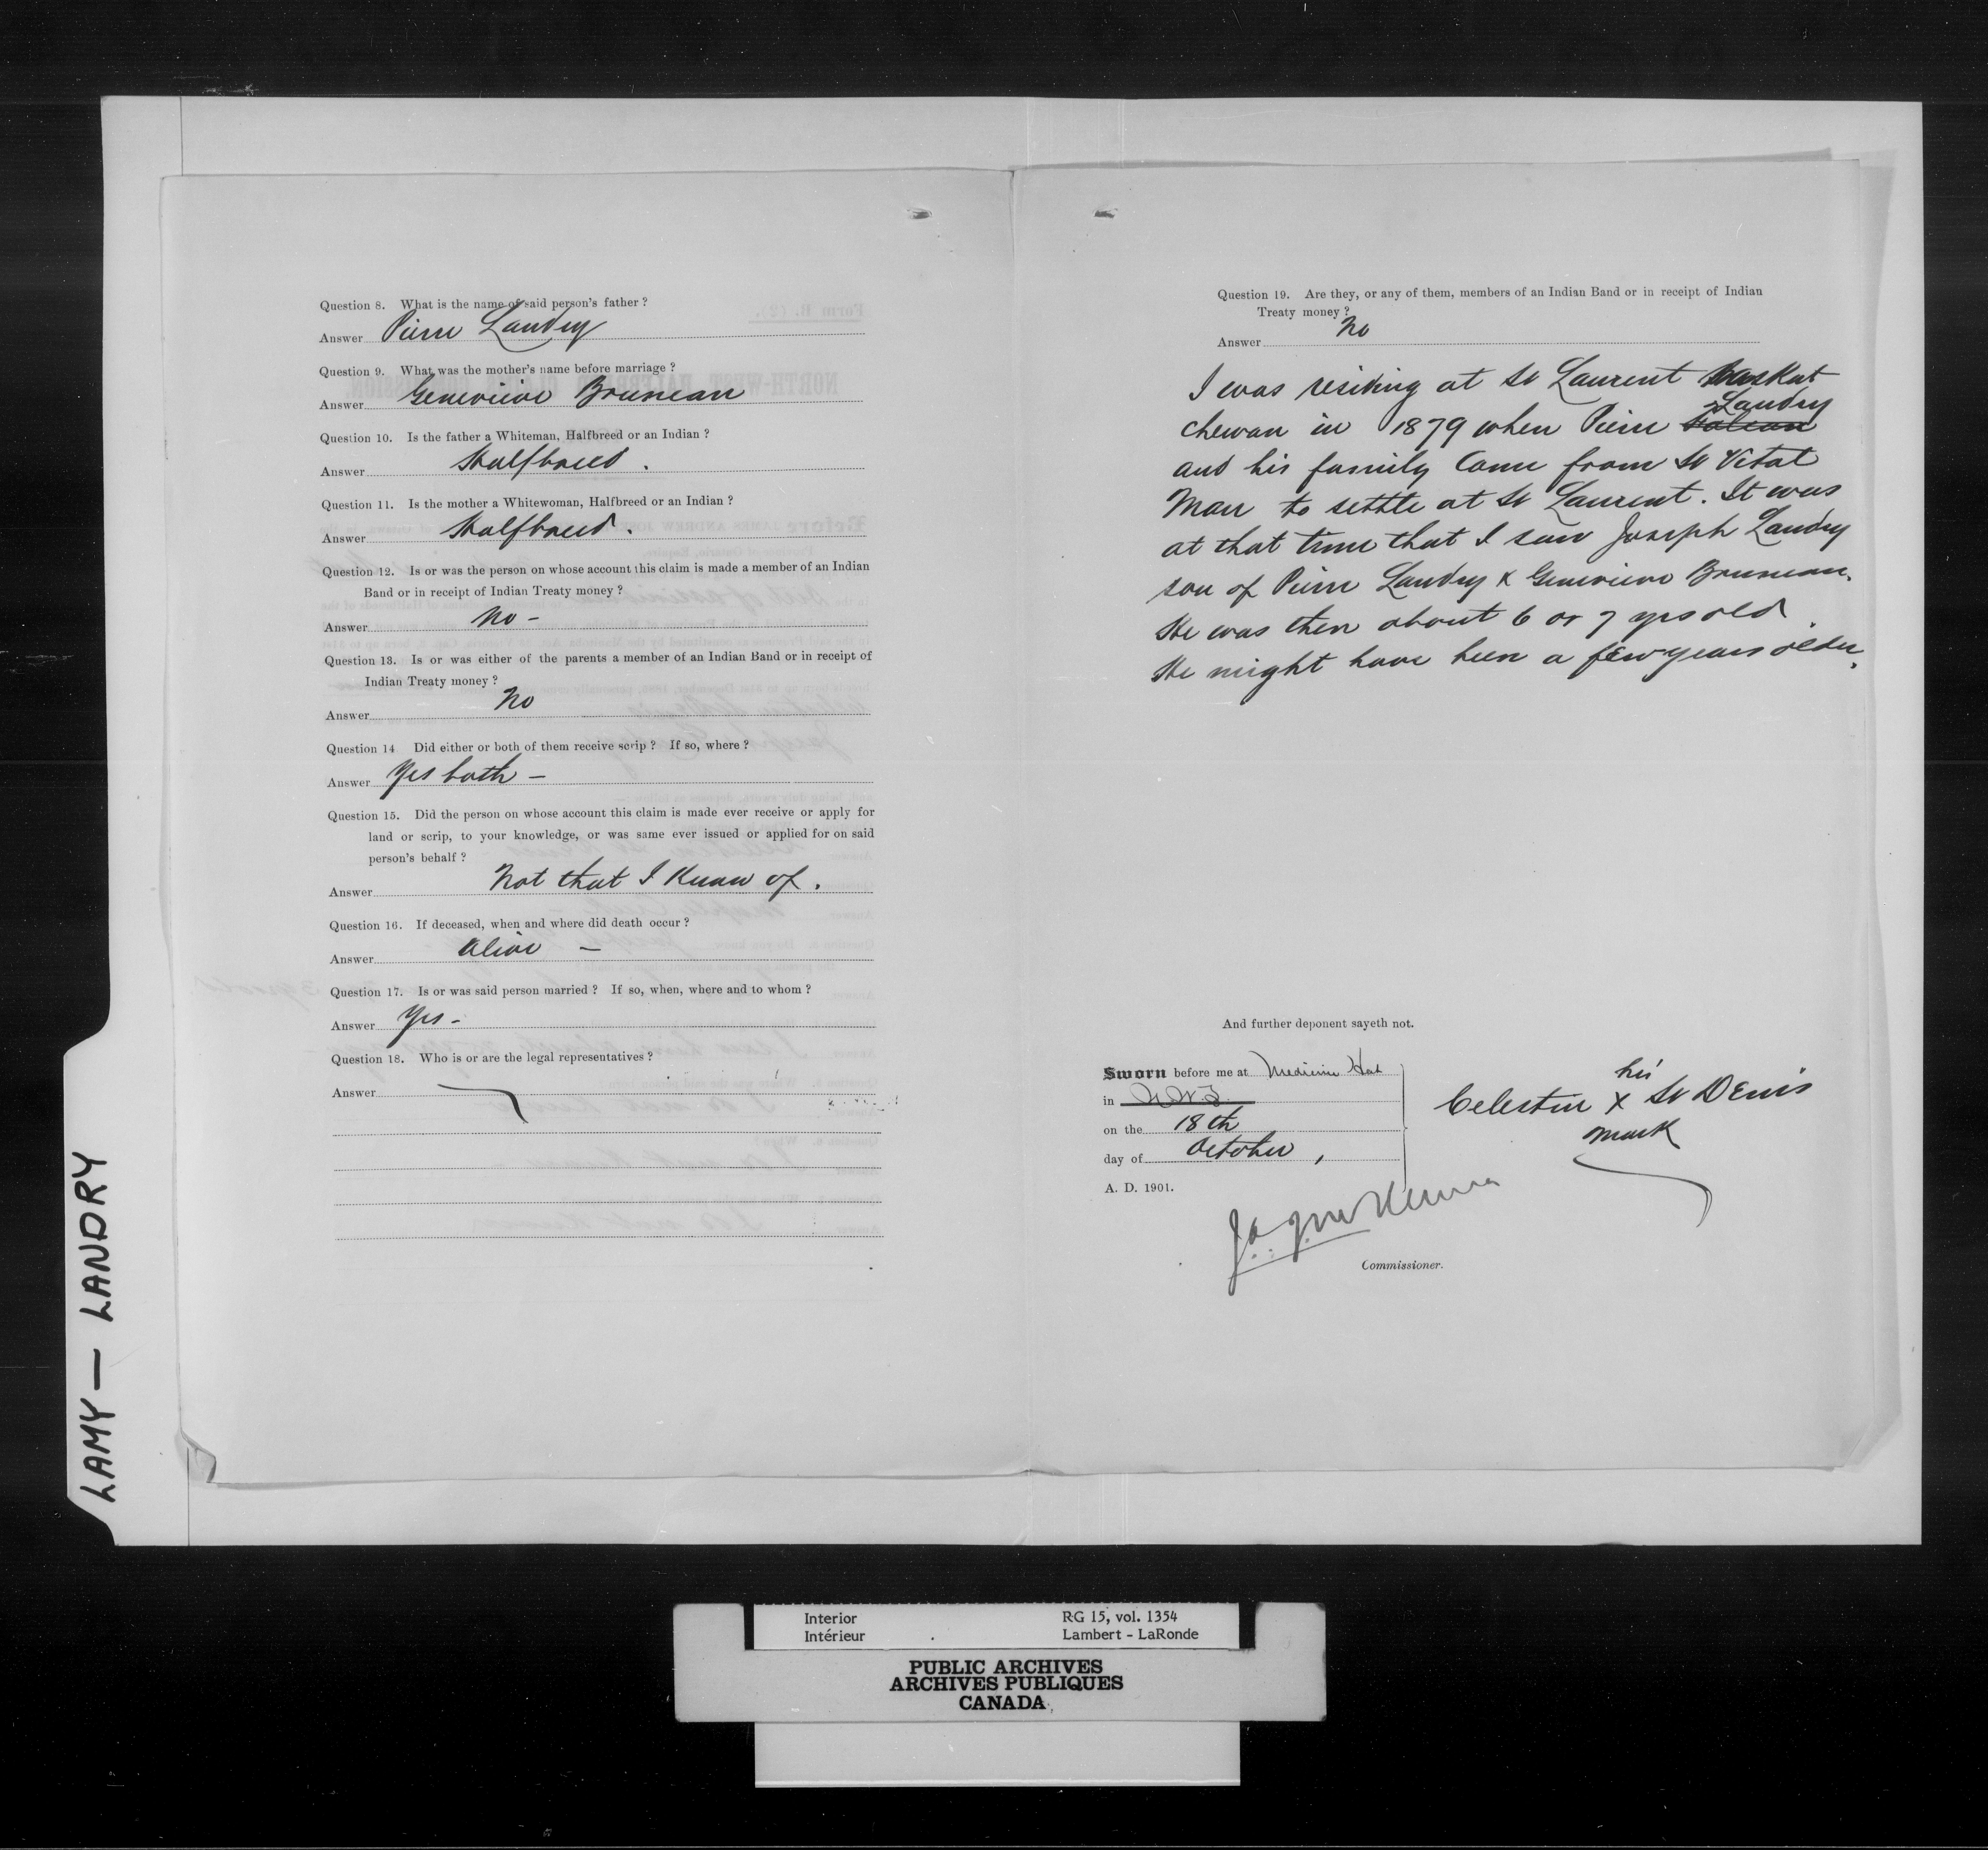 Question 8. What is the name of said person's father ?
Answer Pierre Landry
Question 9. What was the mother's name before marriage ?
Answer Genevieve Bruneau
Question 10. Is the father a Whiteman, Halfbreed or an Indian ?
Answer Halfbreed.
Question 11. Is the mother a Whitewoman, Halfbreed or an Indian ?
Answer Halfbreed.
Question 12. Is or was the person on whose account this claim is made a member of an Indian
Band or in receipt of Indian Treaty money ?
Answer No -
Question 13. Is or was either of the parents a member of an Indian Band or in receipt of
Indian Treaty money ?
Answer No
Question 14 Did either or both of them receive scrip ? If so, where ?
Answer Yes both -
Question 15. Did the person on whose account this claim is made ever receive or apply for
land or scrip, to your knowledge, or was same ever issued or applied for on said
person's behalf ?
Answer Not that I know of.
Question 16. If deceased, when and where did death occur ?
Answer Alive -
Question 17. Is or was said person married ? If so, when, where and to whom ?
Answer Yes -
Question 18. Who is or are the legal representatives ?
Answer
Question 19. Are they, or any of them, members of an Indian Band or in receipt of Indian
Treaty money ?
Answer No
I was residing at St Laurent Saskat
chewan in 1879 when Pierre Landry
and his family came from St Vital
Man to settle at St Laurent. It was
at that time that I saw Joseph Landry
son of Pierre Landry & Genevieve Bruneau.
He was then about 6 or 7 yrs old.
He might have been a few years older.
And further deponent sayeth not.
Sworn before me at Medicine Hat
in N.W.T.
on the 18th
day of October,
A. D. 1901.
his
Celestin X St Denis
mark
J. A. J. McKenna
Commissioner.
LAMY — LANDRY
Interior RG 15, vol. 1354
Intérieur Lambert - LaRonde
PUBLIC ARCHIVES
ARCHIVES PUBLIQUES
CANADA